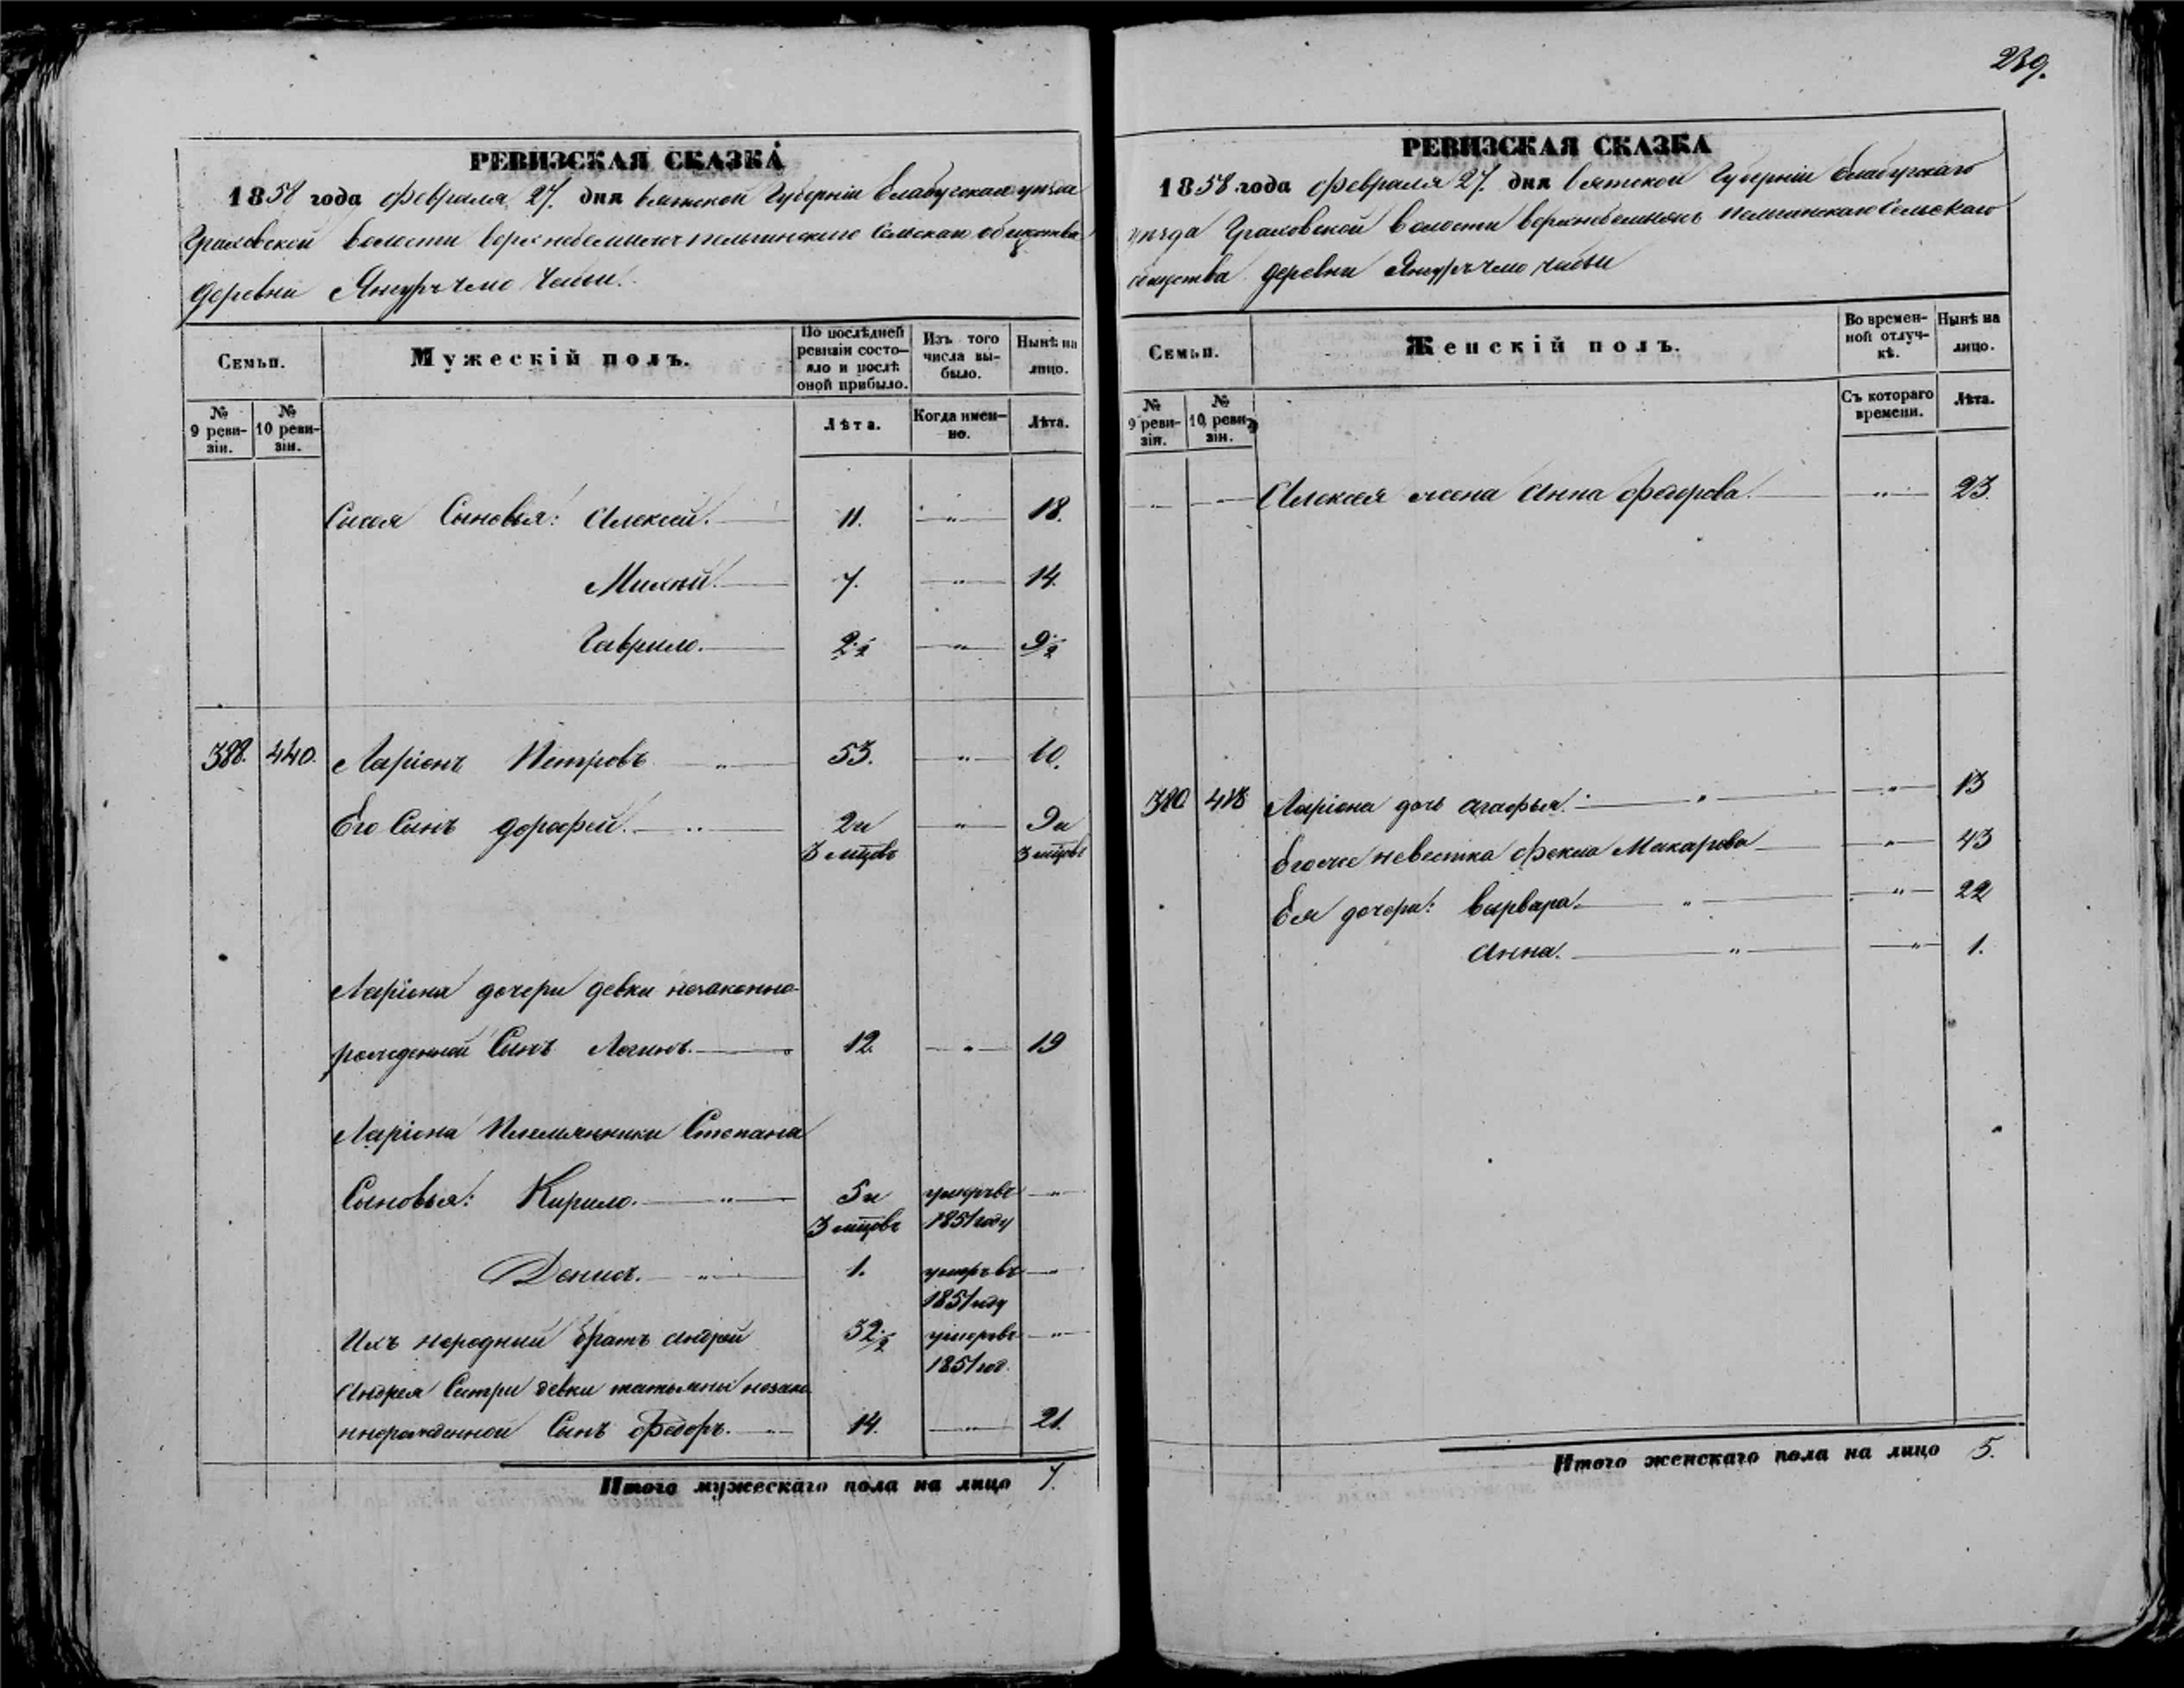 239.
РЕВИЗСКАЯ СКАЗКА
1858 года февраля 27. дня вятской Губерніи Елабугскаго уѣзда
Граховской волости
деревни
Семьи.
Мужескій полъ.
По послѣдней ревизіи состояло и послѣ оной прибыло.
Изъ того числа выбыло.
Нынѣ на лицо.
№ 9 ревизіи.
№ 10 ревизіи.
Лѣта.
Когда именно.
Лѣта.
Сысоя Сыновья: Алексей. 11. " 18.
Михей. 7. " 14.
Гаврило. 2½ " 9½
388. 440. Ларіонъ Петровъ " 53. " 60.
Его Сынъ дорофей. " 2 и " 9 и
3 мцовъ 3 мцовъ
Ларіона дочери девки незаконно-
рожденной Сынъ Логинъ. 12. " 19
Ларіона Племянники Степана
Сыновья: Кирило. " 5 и умеръ въ "
3 мцовъ 1851 году
Денис. " 1. умеръ въ "
1851 году
Ихъ неродний братъ андрей 32½ умеръ въ "
1851 год.
Андрея Сестры девки татьяны незако-
ннорожденной Сынъ Федоръ. " 14. " 21.
Итого мужескаго пола на лицо 7.
РЕВИЗСКАЯ СКАЗКА
1858 года февраля 27. дня вятской Губерніи Елабугскаго
уѣзда Граховской волости Сельскаго
общества деревни
Семьи.
Женскій полъ.
Во временной отлучкѣ.
Нынѣ на лицо.
№ 9 ревизіи.
№ 10 ревизіи.
Съ котораго времени.
Лѣта.
" Алексея жена Анна федорова. " 23.
Ларіона дочь агафья. " " 13
Егоже невестка фекла Макарова " 43
Ея дочери: варвара. " " 22
Анна. " " 1.
Итого женскаго пола на лицо 5.